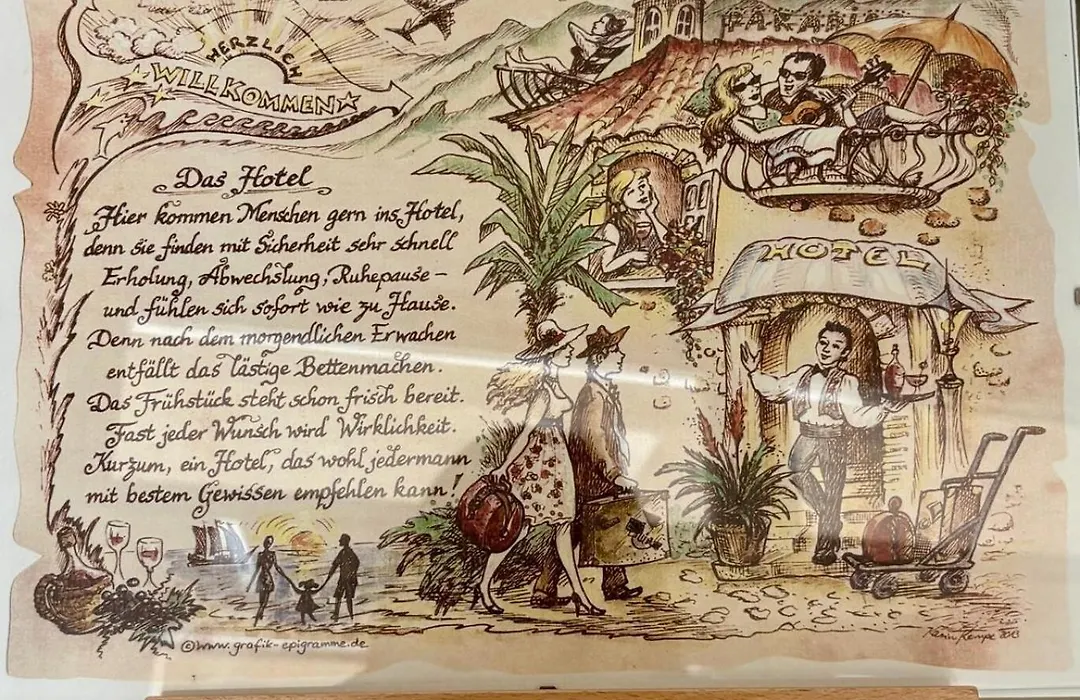 HERZLICH
WILLKOMMEN
PARADIES
Das Hotel
Hier kommen Menschen gern ins Hotel,
denn sie finden mit Sicherheit sehr schnell
Erholung, Abwechslung, Ruhepause –
und fühlen sich sofort wie zu Hause.
Denn nach dem morgendlichen Erwachen
entfällt das lästige Bettenmachen.
Das Frühstück steht schon frisch bereit.
Fast jeder Wunsch wird Wirklichkeit.
Kurzum, ein Hotel, das wohl jedermann
mit bestem Gewissen empfehlen kann!
HOTEL
©www.grafik-epigramme.de
Kempe 2013